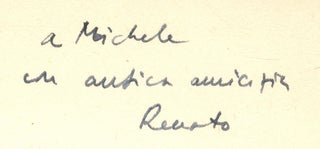 a Michele
con antica amicizia
Renato